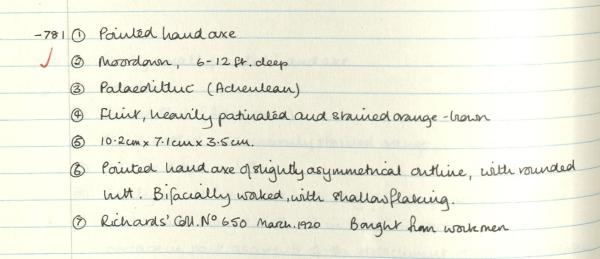 -781 ① Pointed hand axe
② Moordown, 6-12 ft. deep
③ Palaeolithic (Acheulean)
④ Flint, heavily patinated and stained orange-brown
⑤ 10.2cm x 7.1cm x 3.5cm.
⑥ Pointed hand axe of slightly asymmetrical outline, with rounded
butt. Bifacially worked, with shallow flaking.
⑦ Richards' Coll. Nº 650 March. 1920 Bought from workmen